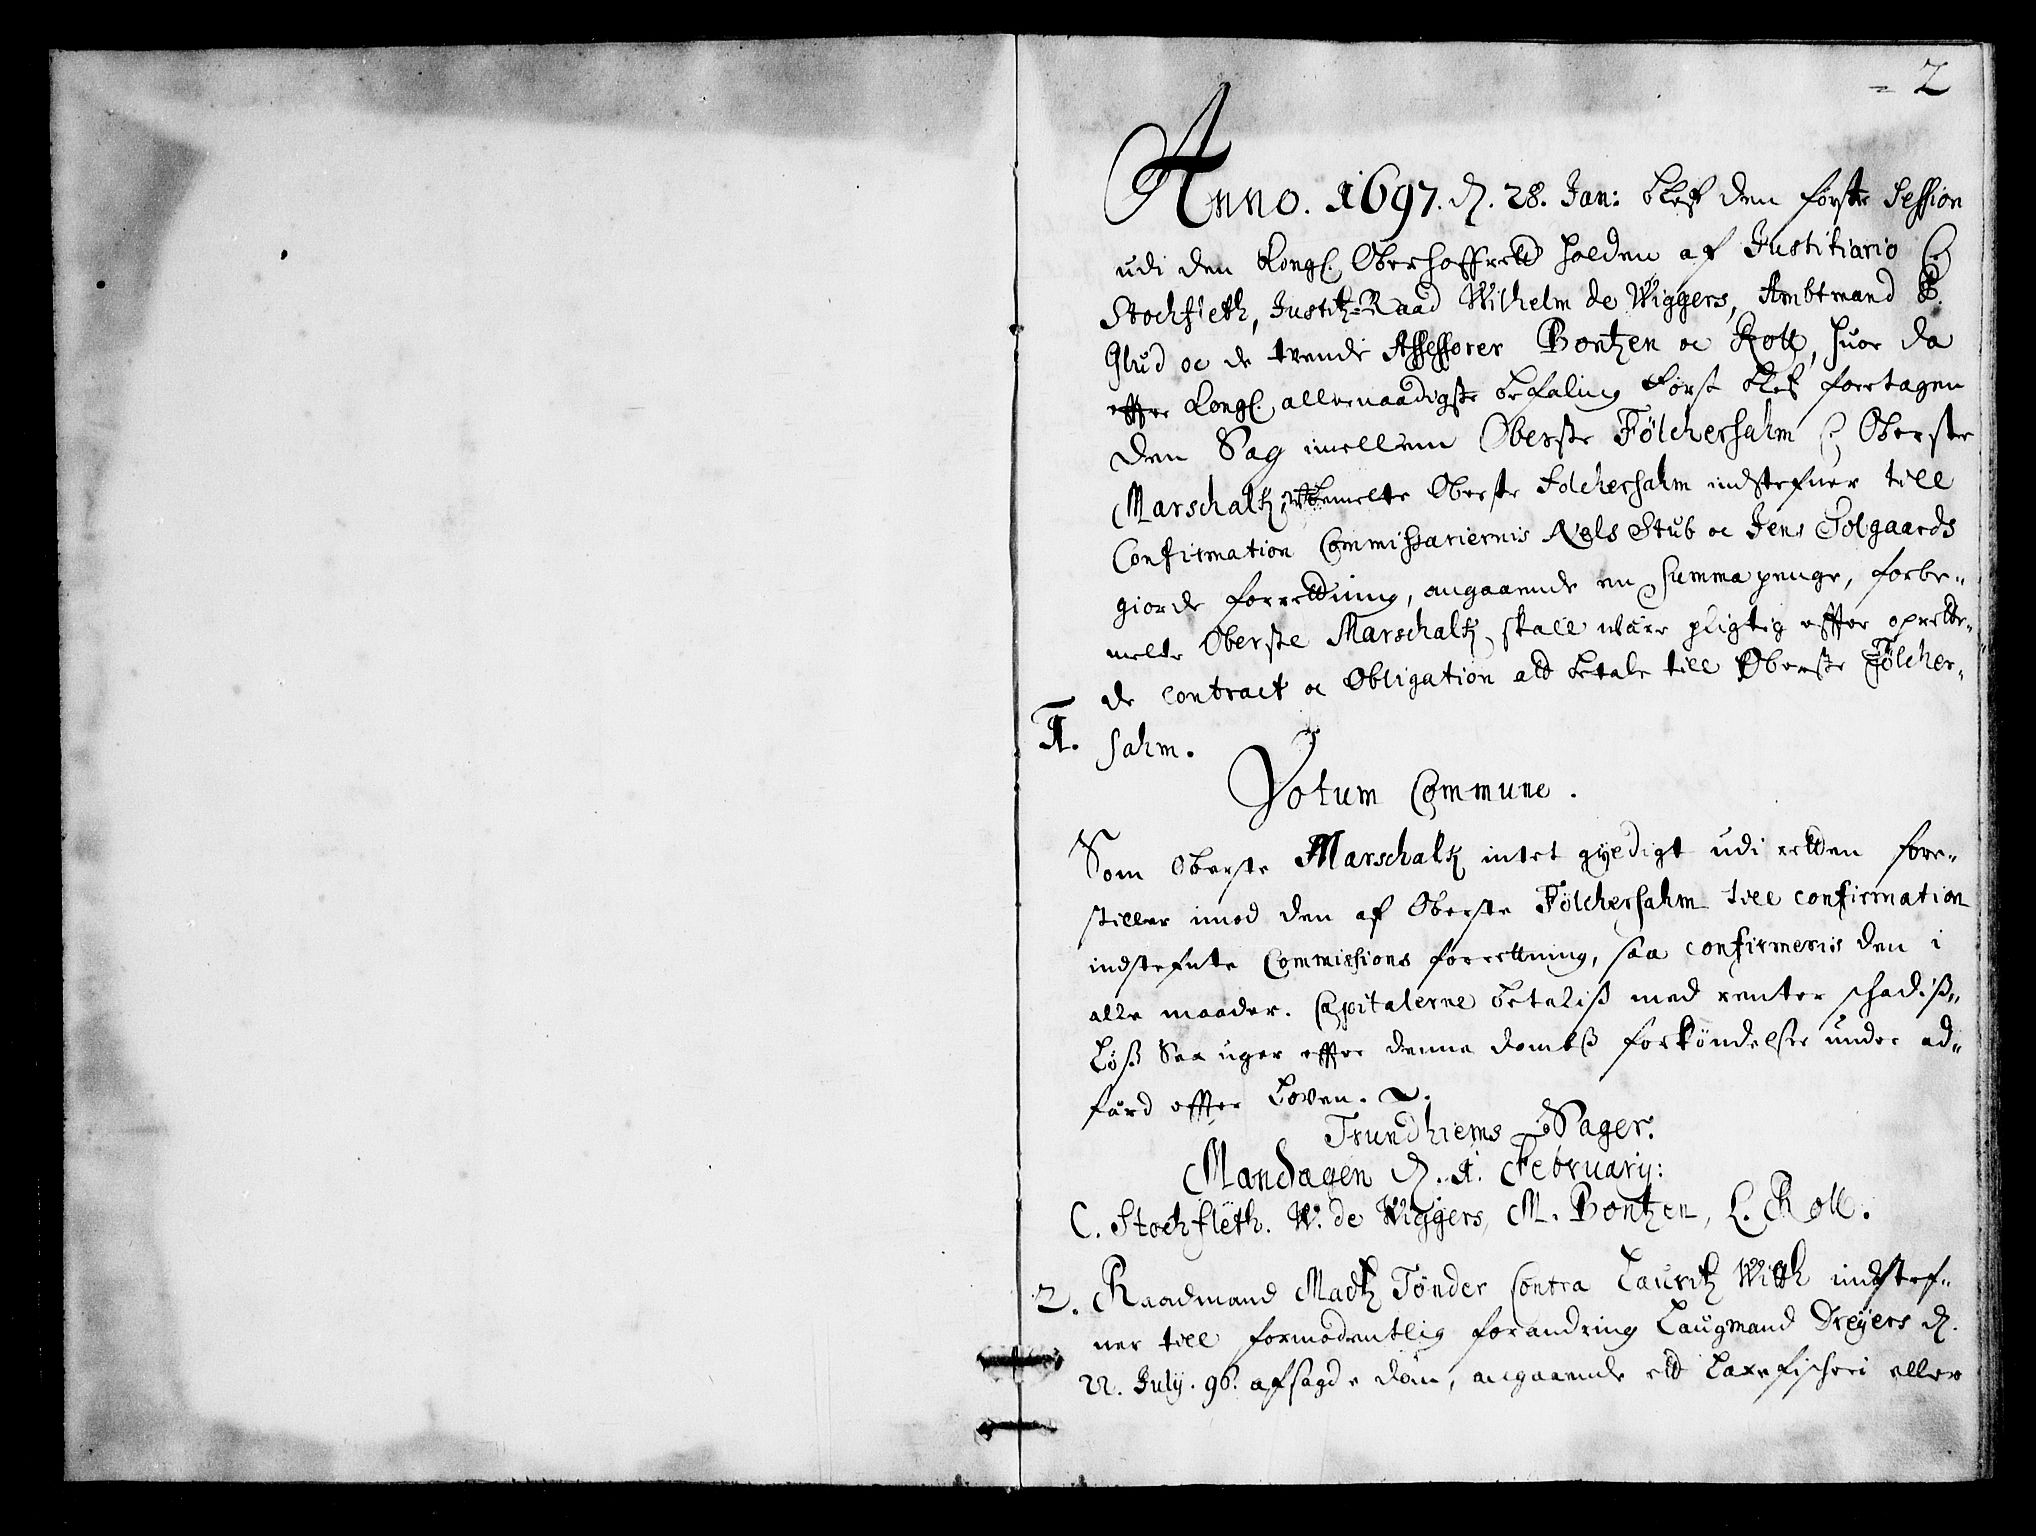 2
Anno. 1697. d. 28. Jan: blef den første Session
udi den Kongl. Oberhoffrett holden af Justitiario C.
Stochfleth, Justitz-Raad Wilhelm de Wiggers, Ambtmand P.
Glud oc de tvende Assessorer Bontzen oc Roll, huor da
effter Kongl. allernaadigste befaling først blef foertagen
den Sag imellem Oberste Fölchersahm oc Oberste
Marschalk, bemelte Oberste Folchersahm indstefner till
Confirmation Commissariernis Niels Stub oc Jens Solgaards
giorde forrettning, angaaende en summa penge, forbe-
melte Oberste Marschalk, skall være pligtig effter oprette-
de contract oc Obligation att betale till Oberste Fölcher-
1. sahm.
Votum Commune.
Som Oberste Marschalk intet gyldigt udi retten fore-
stiller imod den af Oberste Fölchersahm till confirmation
indstefnte Commissions forrettning, saa confirmeris den i
alle maader. Capitalerne betaliß med renter schadiß-
løß Sex uger effter denne dombß forkyndelse under ad-
færd effter Loven.
Trundhiems Sager.
Mandagen d. 1. February:
C. Stochfleth. W. de Wiggers, M. Bontzen, L. Roll.
2. Raadmand Madtz Tønder Contra Lauritz With indstef-
ner till formodentlig forandring Laugmand Dreyers d.
22. July. 96. afsagde dom, angaaende ett Laxefischeri eller